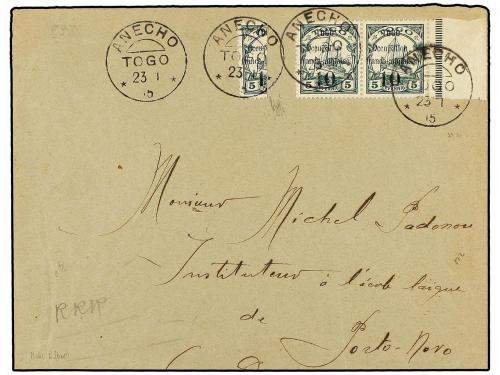 ANECHO
TOGO
23 1
* 15 *
ANECHO
TOGO
23
ANECHO
ANECHO
TOGO
23 1
* 15 *
TOGO
Occupation
franco-anglaise
10
5 5
TOGO
Occupation
franco-anglaise
10
5 5
Monsieur Michel Padonou
Instituteur à l'école laïque
de
Porto-Novo
RRR